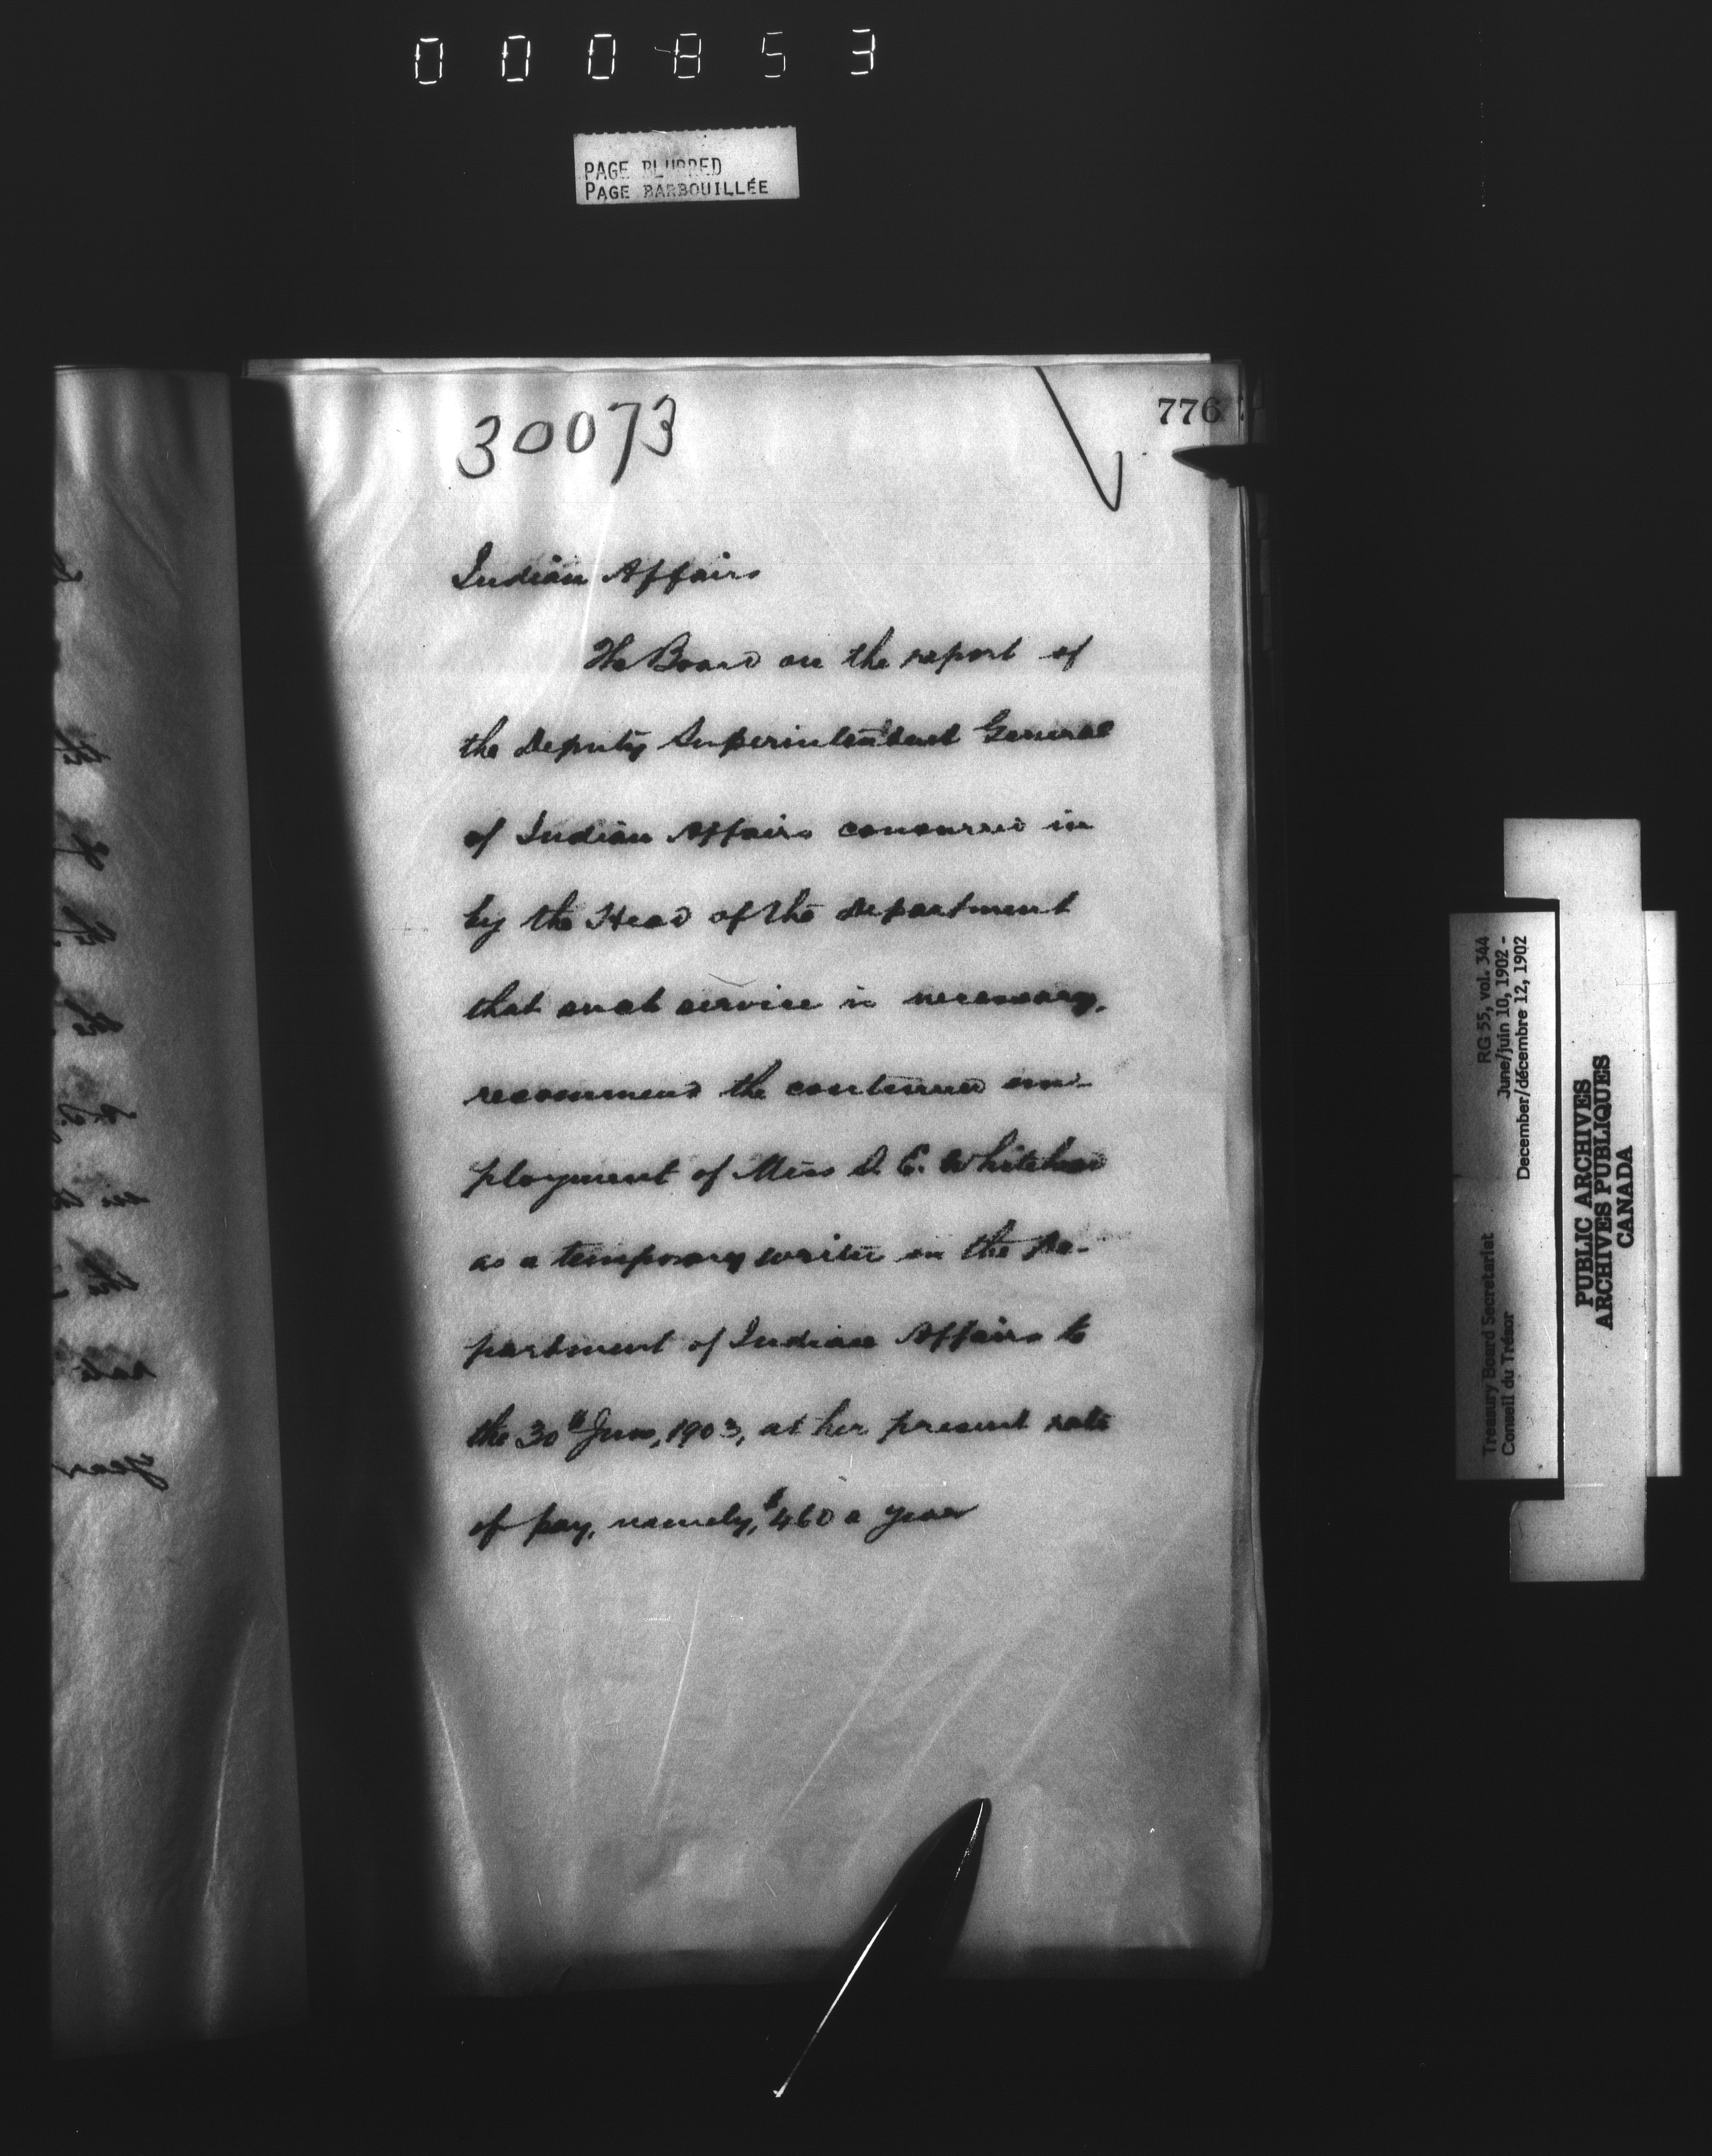 000853
PAGE BLURRED
PAGE BARBOUILLÉE
776
30073
Indian Affairs
The Board on the report of
the Deputy Superintendent General
of Indian Affairs concurred in
by the Head of the Department
that such service is necessary,
recommend the continued em-
ployment of Miss E. Whitehead
as a temporary writer in the De-
partment of Indian Affairs to
the 30th June, 1903, at her present rate
of pay, namely, $460 a year
RG 55, vol. 344
June/juin 10, 1902 -
December/décembre 12, 1902
Treasury Board Secretariat
Conseil du Trésor
PUBLIC ARCHIVES
ARCHIVES PUBLIQUES
CANADA